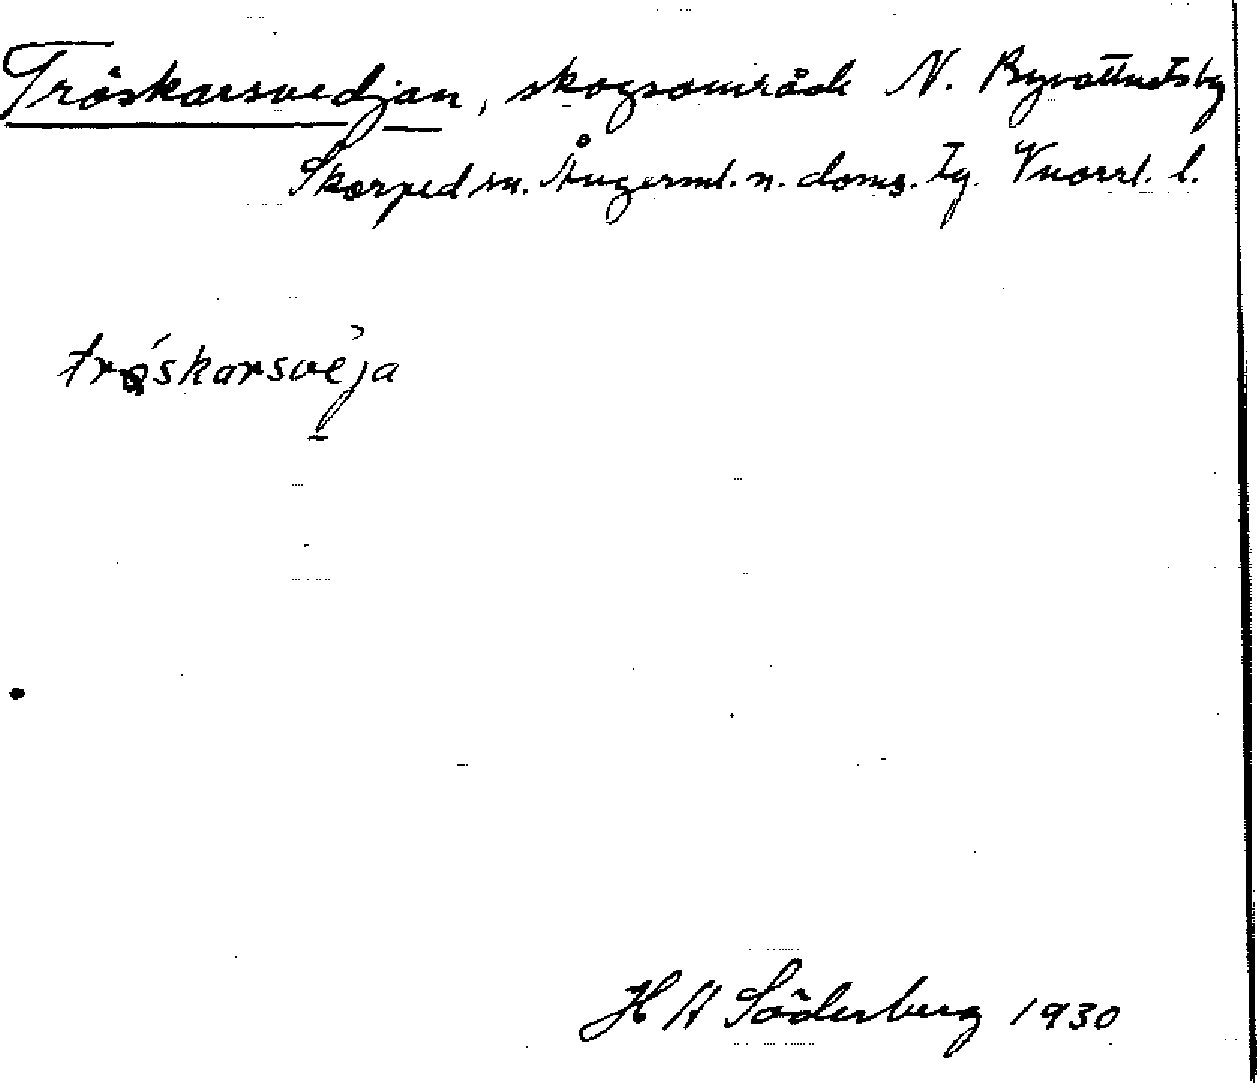 Tröskarsvedjan, skogsområde N. Rysvattnets by
Skorped sn. Ångerml. n. doms. Tg. Vnorrl. l.
tröskarsvéja
H A Söderberg 1930